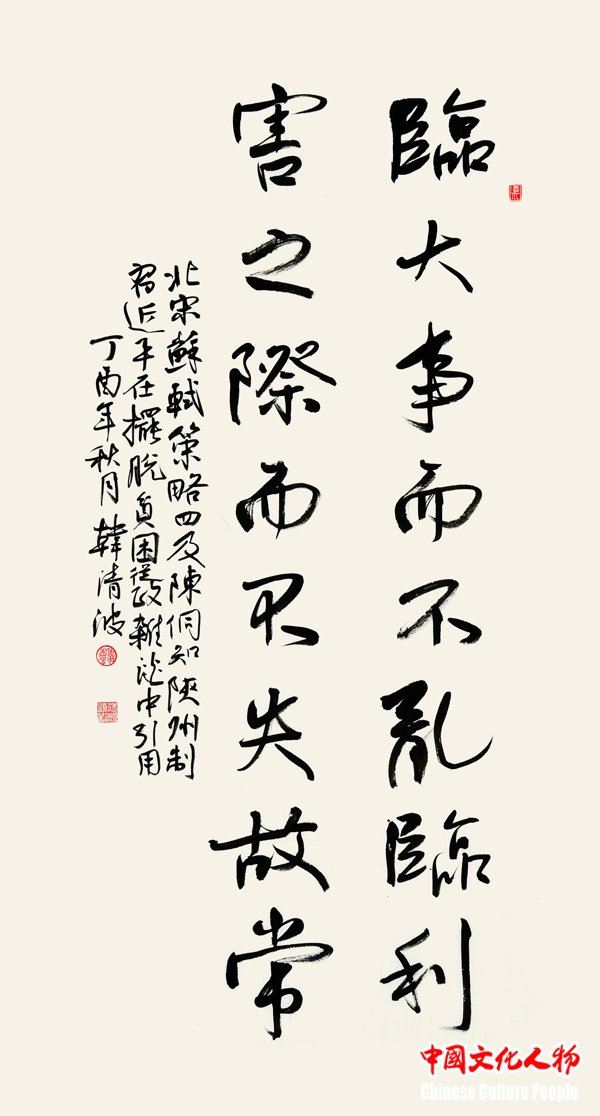 臨大事而不亂臨利
害之際而不失故常
北宋蘇軾策略四及陳侗知陝州制
習近平在擺脫貧困從政雜談中引用
丁酉年秋月韓清波
中國文化人物
Chinese Culture People